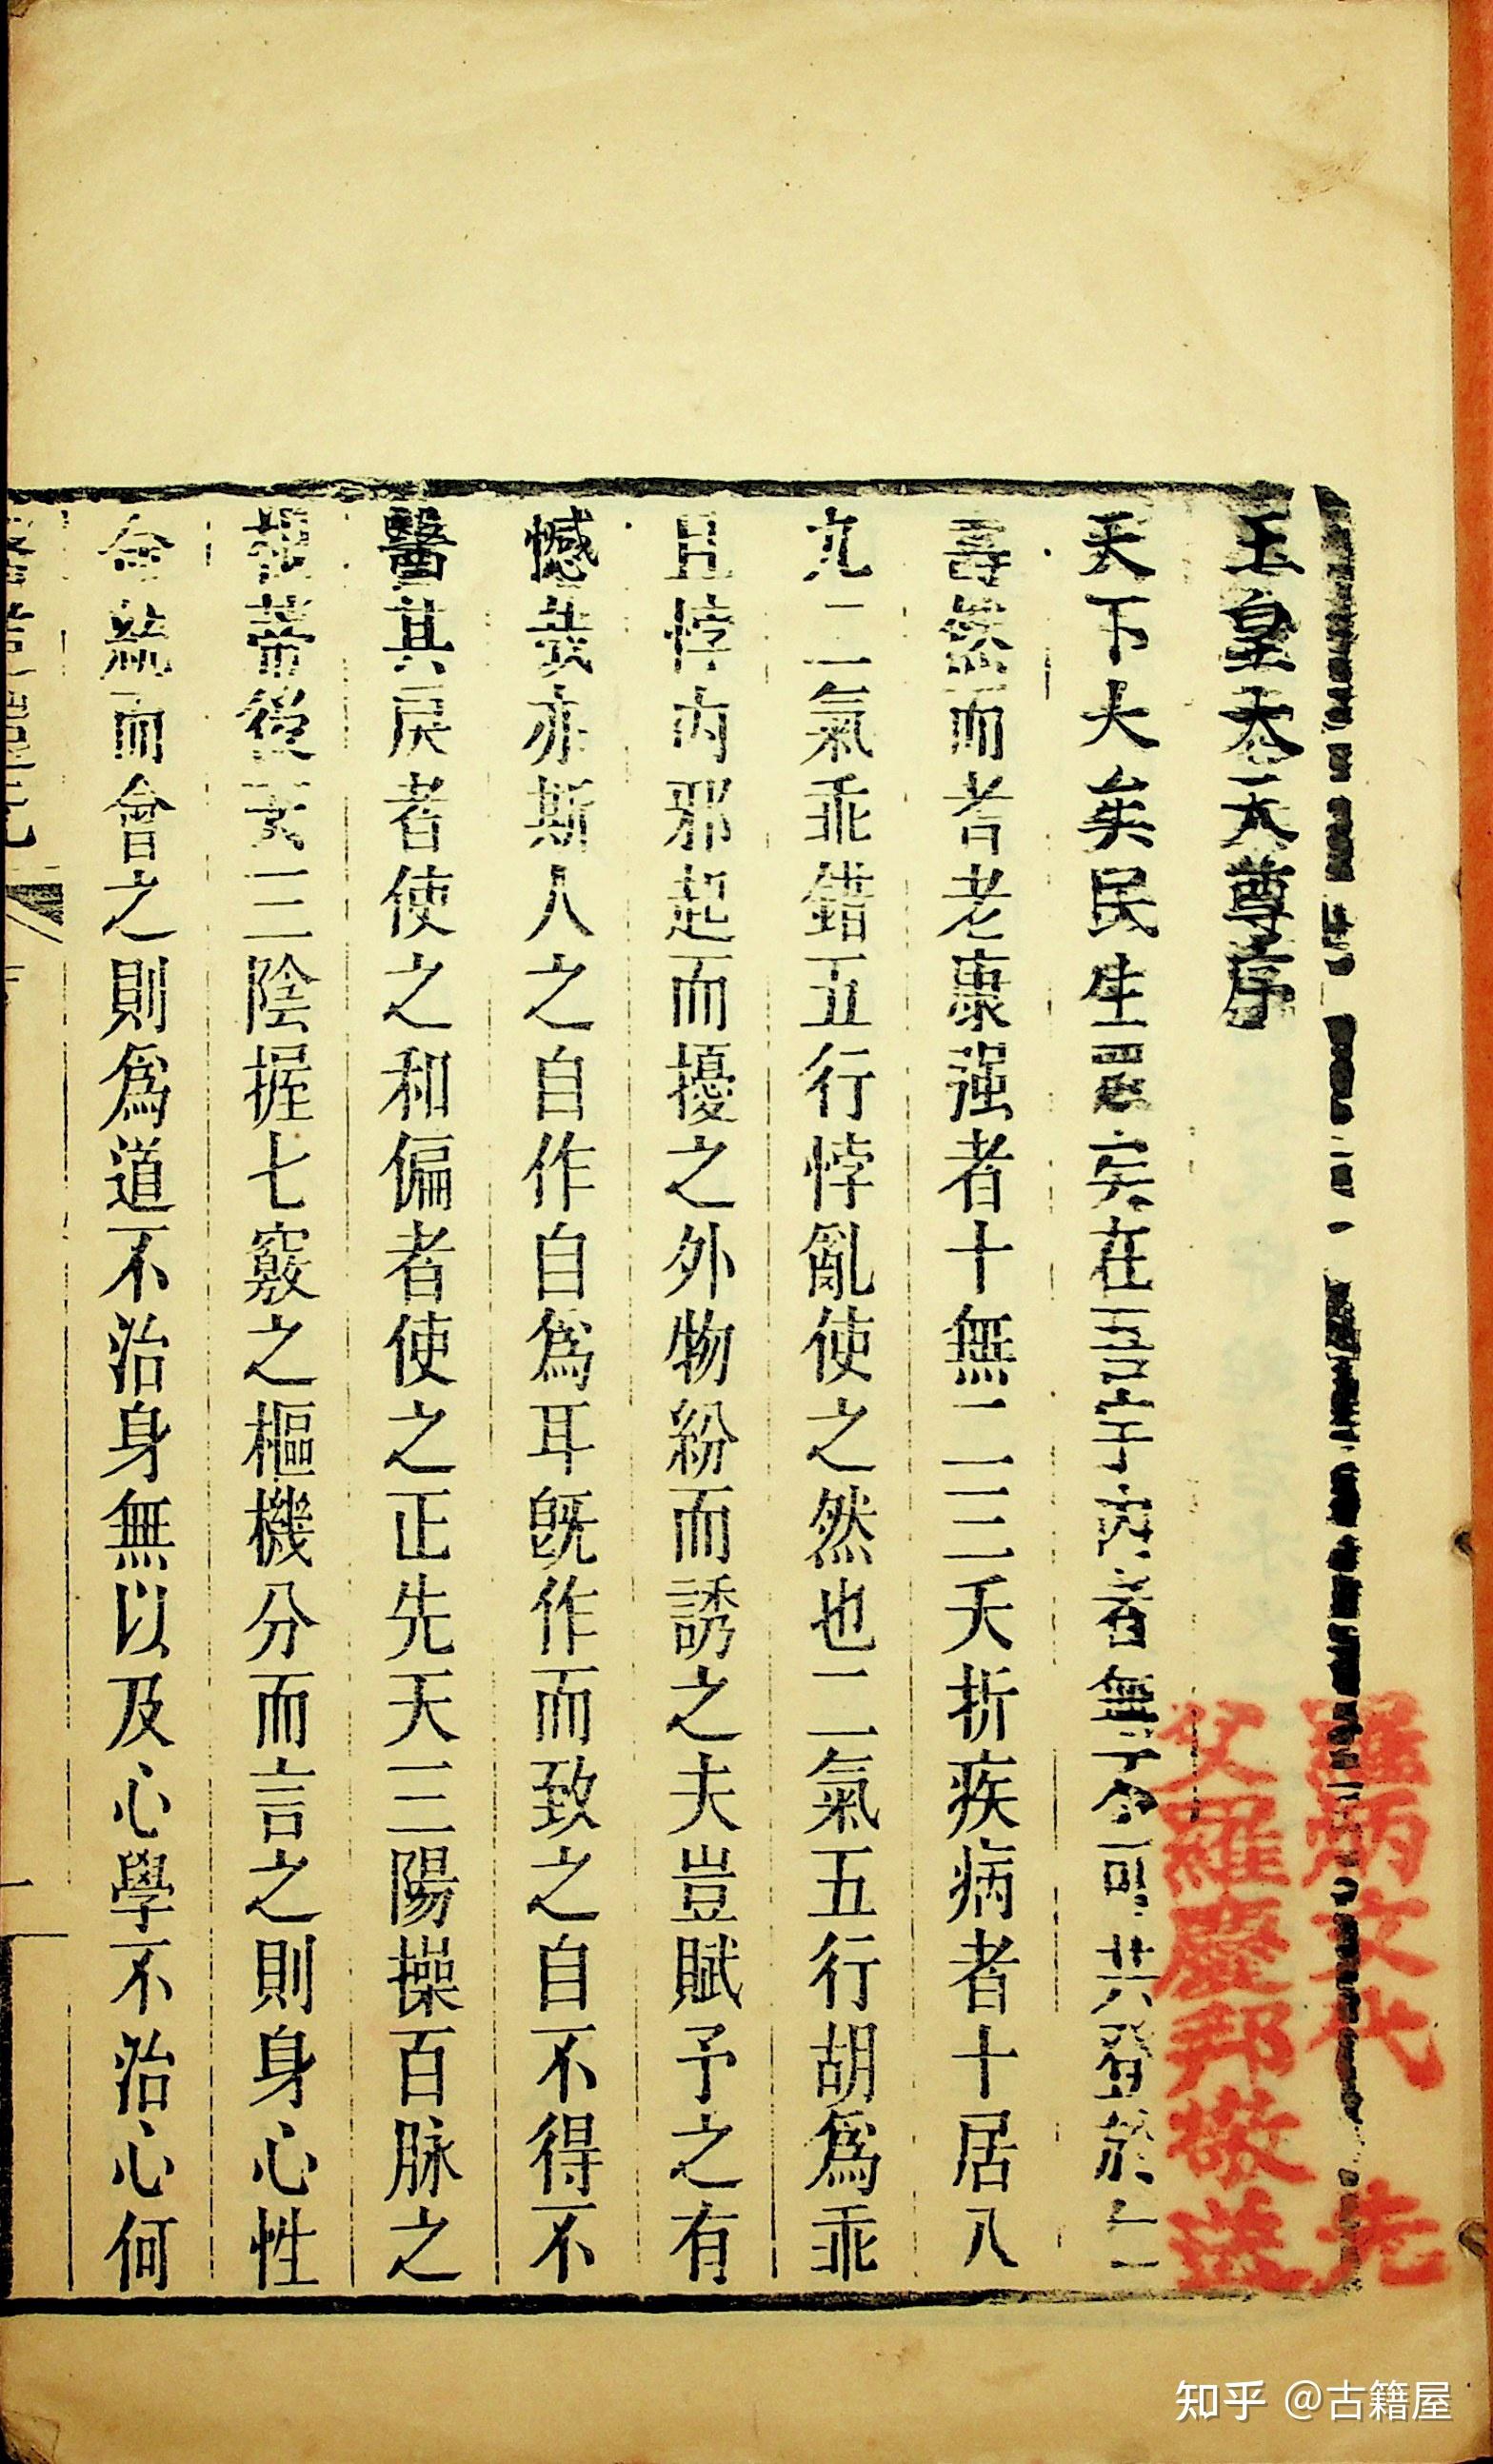 玉皇大天尊序
天下大矣民生眾矣在吾宇內者無不可共登於仁
壽然而耆老康强者十無二三夭折疾病者十居八
九二氣乖錯五行悖亂使之然也二氣五行胡為乖
且悖內邪起而擾之外物紛而誘之夫豈賦予之有
憾哉亦斯人之自作自為耳既作而致之自不得不
醫其戾者使之和偏者使之正先天三陽操百脉之
後天三陰握七竅之樞機分而言之則身心性
命統而會之則為道不治身無以及心學不治心何
羅炳文代先
父羅慶邦敬送
知乎 @古籍屋